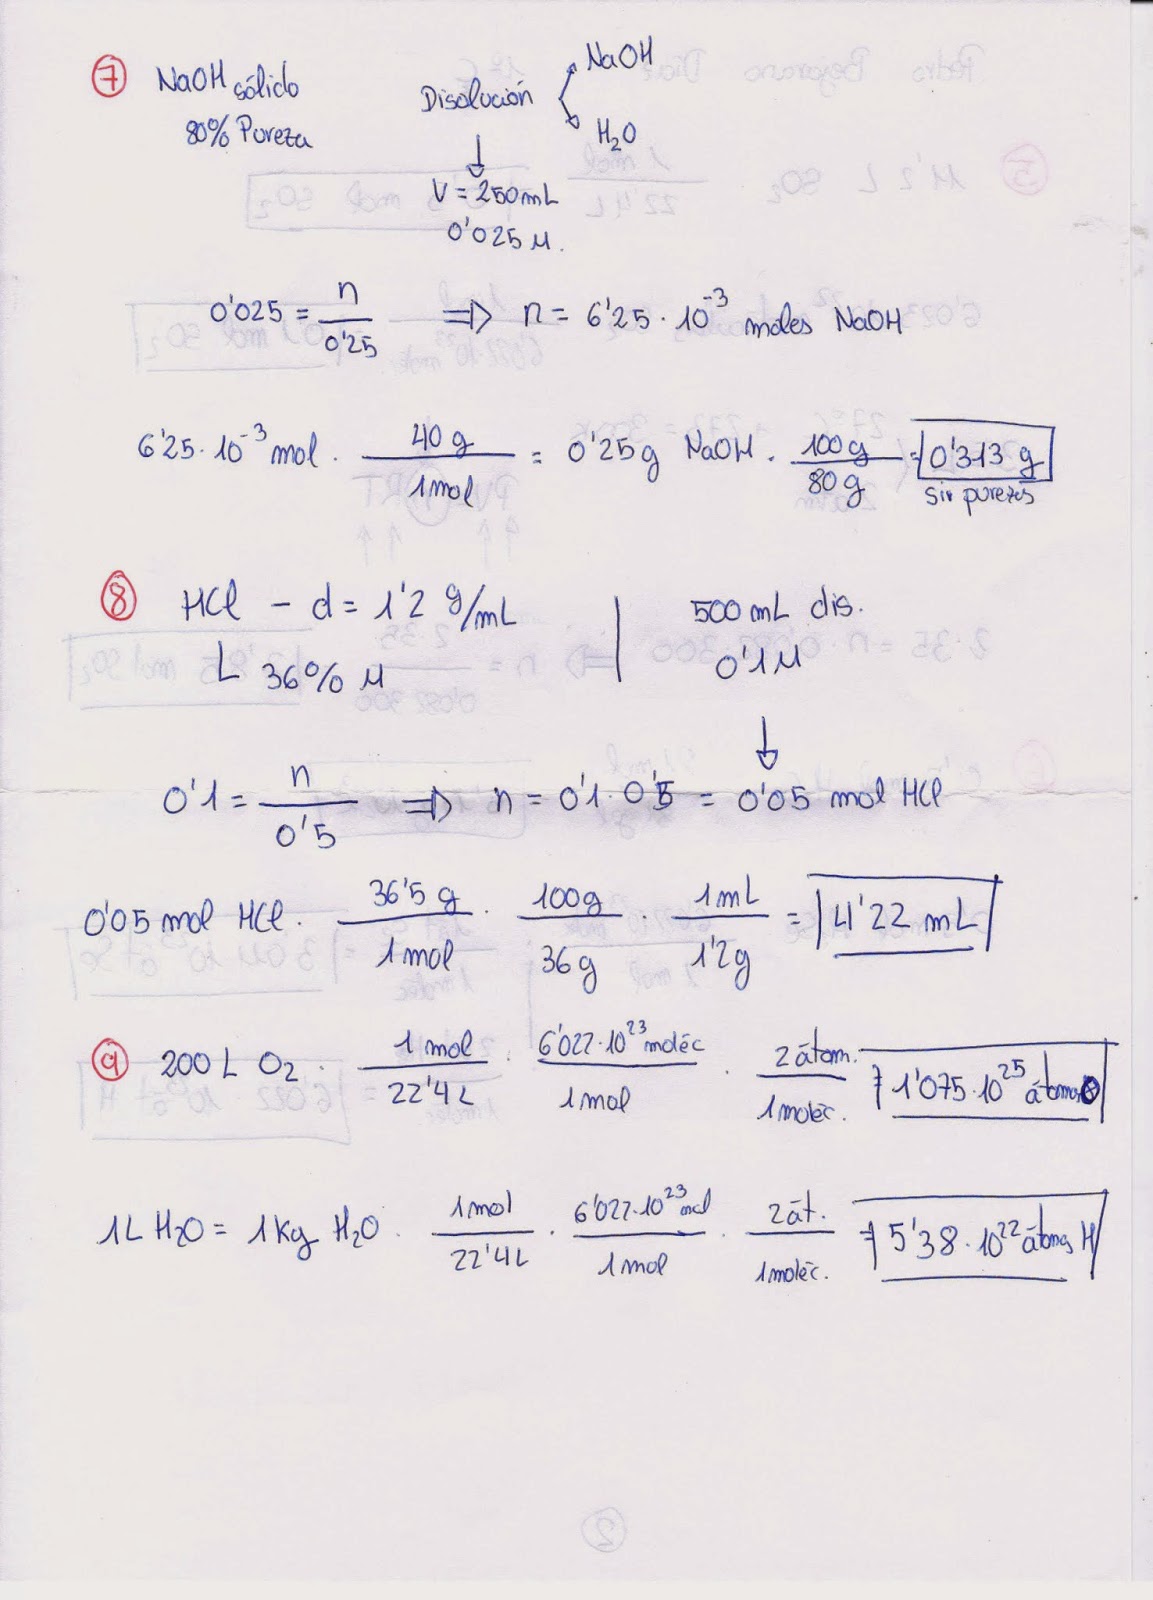 7 NaOH sólido
80% Pureza
Disolución
NaOH
H2O
V = 250 mL
0'025 M.
0'025 = n / 0'25 ⇒ n = 6'25 · 10^-3 moles NaOH
6'25 · 10^-3 mol · 40 g / 1 mol = 0'25 g NaOH · 100 g / 80 g = 0'313 g
sin purezas
8 HCl - d = 1'2 g/mL
36% M
500 mL dis.
0'1 M
0'1 = n / 0'5 ⇒ n = 0'1 · 0'5 = 0'05 mol HCl
0'05 mol HCl · 36'5 g / 1 mol · 100 g / 36 g · 1 mL / 1'2 g = 4'22 mL
9 200 L O2 · 1 mol / 22'4 L · 6'022 · 10^23 moléc / 1 mol · 2 átom. / 1 moléc. = 1'075 · 10^25 átomos O
1 L H2O = 1 Kg H2O · 1 mol / 22'4 L · 6'022 · 10^23 mol / 1 mol · 2 át. / 1 moléc. = 5'38 · 10^22 átomos H